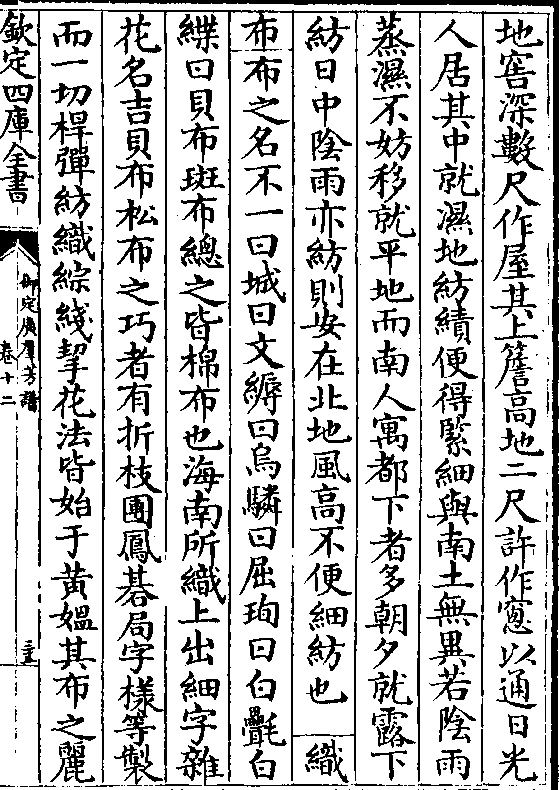 地窖深數尺作屋其上簷高地二尺許作窻以通日光
人居其中就濕地紡績便得緊細與南土無異若陰雨
蒸濕不妨移就平地而南人寓都下者多朝夕就露下
紡日中陰雨亦紡則安在北地風高不便細紡也　織
布布之名不一曰城曰文縟曰烏驎曰屈眴曰白㲲白
緤曰貝布斑布總之皆棉布也海南所織上出細字雜
花名吉貝布松布之巧者有折枝團鳳碁局字樣等製
而一切桿彈紡織綜綫挈花法皆始于黃媼其布之麗
欽定四庫全書
御定廣羣芳譜
卷十二